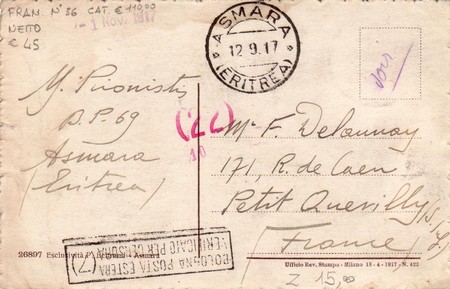 FRAM. N° 56 CAT. € 110,00
NETTO
€ 45
-1 Nov. 1917
ASMARA
12.9.17
(ERITREA)
M. Pironisti
B.P. 69
Asmara
(Eritrea)
(22)
10
Mr F. Delaunay
171, R. de Caen
Petit Quevilly
(France)
26897 Esclusività
BOLOGNA POSTA ESTERA
VERIFICATO PER CENSURA
(7)
Ufficio Rev. Stampa - Milano 18-4-1917 - N. 422
15,00